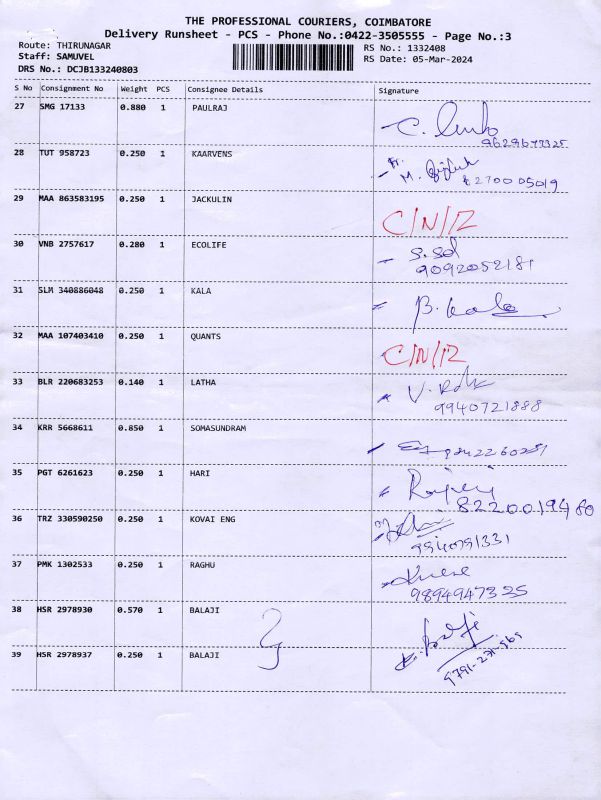 THE PROFESSIONAL COURIERS, COIMBATORE
Delivery Runsheet - PCS - Phone No.:0422-3505555 - Page No.:3
Route: THIRUNAGAR RS No.: 1332408
Staff: SAMUVEL RS Date: 05-Mar-2024
DRS No.: DCJB133240803
S No Consignment No Weight PCS Consignee Details Signature
27 SMG 17133 0.880 1 PAULRAJ
28 TUT 958723 0.250 1 KAARVENS
M.
8270005019
29 MAA 863583195 0.250 1 JACKULIN
C/N/R
30 VNB 2757617 0.280 1 ECOLIFE
9092052181
31 SLM 340886048 0.250 1 KALA
B. kala
32 MAA 107403410 0.250 1 QUANTS
C/N/R
33 BLR 220683253 0.140 1 LATHA
9940721888
34 KRR 5668611 0.850 1 SOMASUNDRAM
35 PGT 6261623 0.250 1 HARI
8220019480
36 TRZ 330590250 0.250 1 KOVAI ENG
9940791331
37 PMK 1302533 0.250 1 RAGHU
9894947325
38 HSR 2978930 0.570 1 BALAJI
39 HSR 2978937 0.250 1 BALAJI
9791-271-565